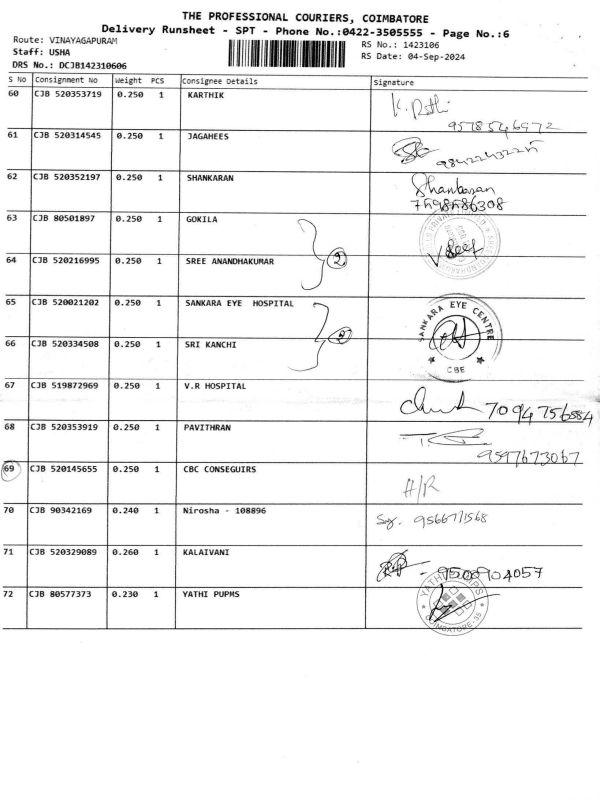 THE PROFESSIONAL COURIERS, COIMBATORE
Delivery Runsheet - SPT - Phone No.:0422-3505555 - Page No.:6
Route: VINAYAGAPURAM
Staff: USHA
DRS No.: DCJB142310606
RS No.: 1423106
RS Date: 04-Sep-2024
S No Consignment No Weight PCS Consignee Details Signature
60 CJB 520353719 0.250 1 KARTHIK
9578546972
61 CJB 520314545 0.250 1 JAGAHEES
62 CJB 520352197 0.250 1 SHANKARAN Shankaran
7598586308
63 CJB 80501897 0.250 1 GOKILA
2
64 CJB 520216995 0.250 1 SREE ANANDHAKUMAR
65 CJB 520021202 0.250 1 SANKARA EYE HOSPITAL
SANKARA EYE CENTRE
CBE
2
66 CJB 520334508 0.250 1 SRI KANCHI
67 CJB 519872969 0.250 1 V.R HOSPITAL
68 CJB 520353919 0.250 1 PAVITHRAN
9597673067
69 CJB 520145655 0.250 1 CBC CONSEGUIRS
A/R
70 CJB 90342169 0.240 1 Nirosha - 108896
71 CJB 520329089 0.260 1 KALAIVANI
- 9500904057
72 CJB 80577373 0.230 1 YATHI PUPMS
COIMBATORE-35